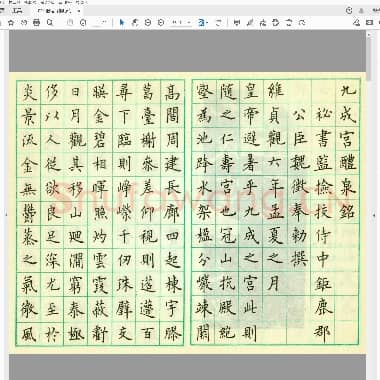 九成宮醴泉銘
祕書監檢校侍中鉅鹿郡
公臣魏徵奉勑撰
維貞觀六年孟夏之月
皇帝避暑乎九成之宮此則
隨之仁壽宮也冠山抗殿絕
壑為池跨水架楹分巖竦闕
高閣周建長廊四起棟宇膠
葛臺榭參差仰視則迢遰百
尋下臨則崢嶸千仞珠璧交
暎金碧相暉照灼雲霞蔽虧
日月觀其移山迴澗窮泰極
侈以人從欲良足深尤至於
炎景流金無鬱蒸之氣微風